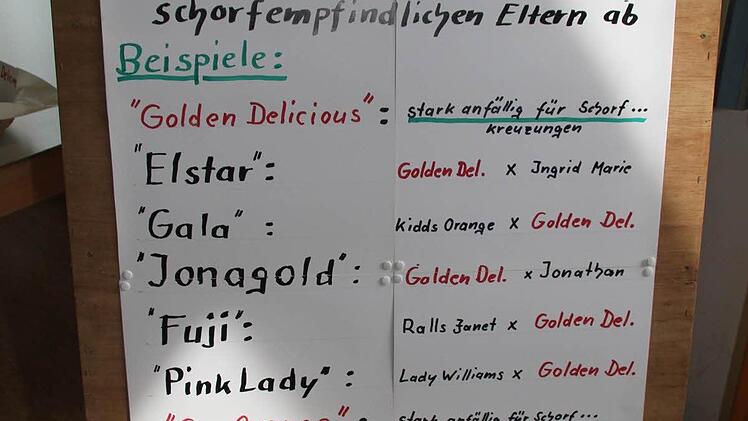 schorfempfindlichen Eltern ab
Beispiele:
"Golden Delicious": stark anfällig für Schorf...
kreuzungen
"Elstar": Golden Del. x Ingrid Marie
"Gala": Kidds Orange x Golden Del.
"Jonagold": Golden Del. x Jonathan
"Fuji": Ralls Janet x Golden Del.
"Pink Lady": Lady Williams x Golden Del.
stark anfällig für Schorf...